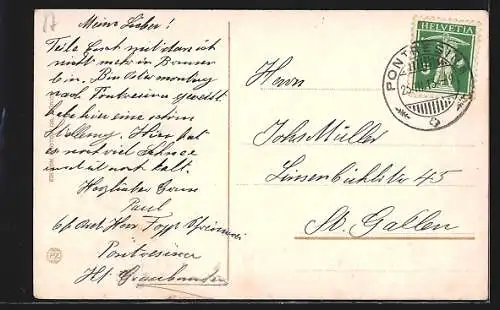 Mein Lieber!
Teile Euch mit dass ich
nicht mehr in Brunnen
bin. Bin Ostermontag
nach Pontresina gereist
habe hier eine schöne
Stellung. Hier hat
es noch viel Schnee
und ist noch kalt.
Herzliche Grüsse
Paul
Pontresina
Kt. Graubünden
HELVETIA
5
PONTRESINA
Herrn
Johs Müller
Linsenbühlstr 45
St. Gallen